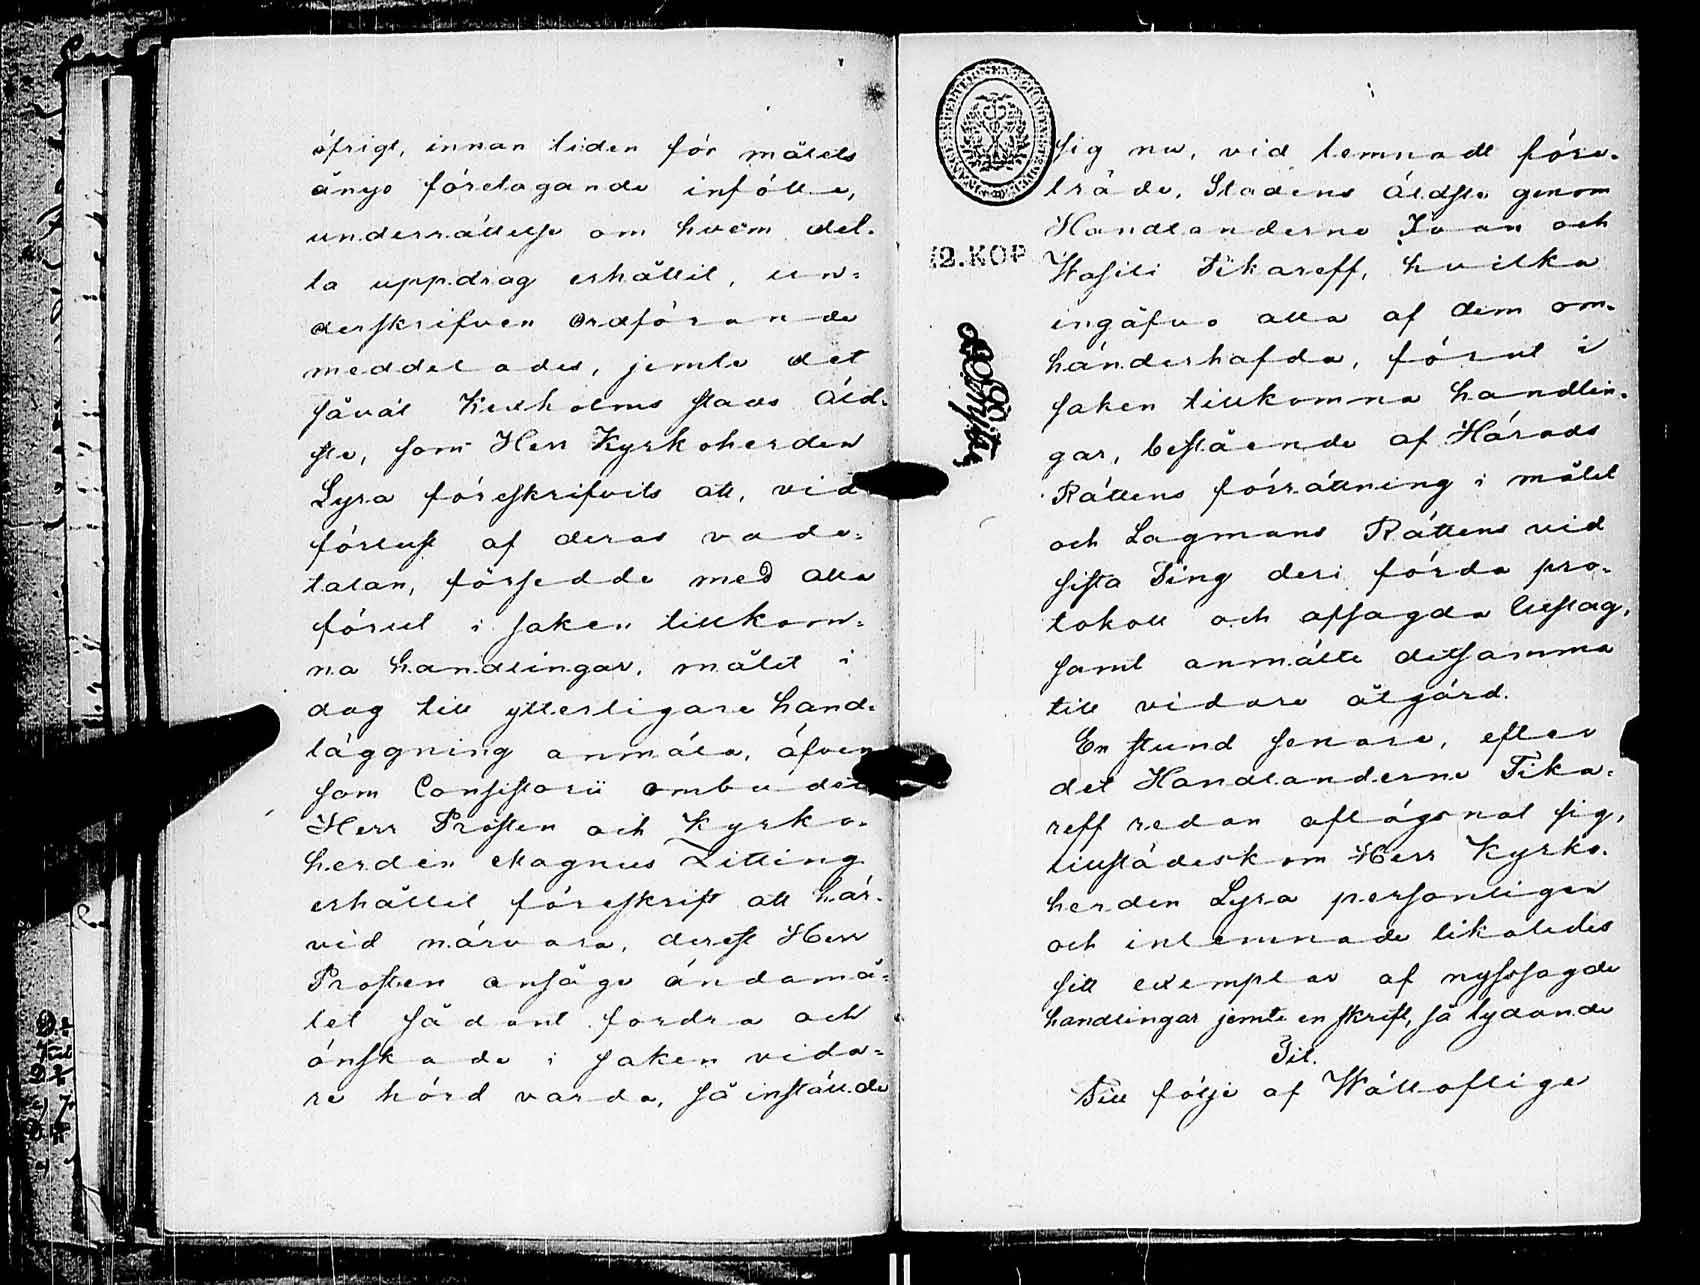 öfrigt, innan tiden för målets
ånyo företagande infölle,
underrättelse om hvem det-
ta uppdrag erhållit, un-
derskrifven Ordförande
meddelades, jemte det
såväl Kexholms stads Äld-
ste, som Herr Kyrkoherden
Lyra föreskrifvits att, vid
förlust af deras vade-
talan, försedde med alla
förut i saken tillkom-
na handlingar, målet i
dag till ytterligare hand-
läggning anmäla, äfven
som Consistorii ombudet
Herr Prosten och Kyrko-
herden Magnus Zitting
erhållit föreskrift att här-
vid närvara, derest Herr
Prosten ansåge ändamå-
let sådant fordra och
önskade i saken vida-
re hörd varda, så instälde
sig nu, vid lemnadt före-
träde, Stadens Äldste genom
Handlanderne Ivan och
Wasili Tikareff, hvilka
ingåfvo alla af dem om-
händerhafda, förut i
saken tillkomna handlin-
gar, bestående af Härads
Rättens förrättning i målet
och Lagmans Rättens vid
sista Ting deri förda pro-
tokoll och afsagda utslag,
samt anmälte detsamma
till vidare åtgärd.
En stund senare, efter
det Handlanderne Tika-
reff redan aflägsnat sig,
tillstädeskom Herr Kyrko-
herden Lyra personligen
och inlemnade likaledes
sitt exemplar af nyssagde
handlingar jemte en skrift, så lydande
Til.
Till följe af Wälloflige
72.KOP